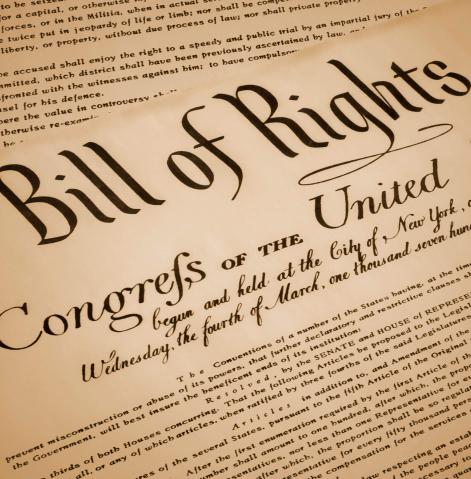 to be seized.
for a capital, or otherwise
forces, or in the Militia, when in actual
twice put in jeopardy of life or limb; nor shall
liberty, or property, without due process of law; nor shall private
be accused shall enjoy the right to a speedy and public trial by an impartial jury of the
mitted, which district shall have been previously ascertained by law, and
fronted with the witnesses against him; to have compulsory
sel for his defence.
here the value in controversy
therwise re-exam
Bill of Rights
Congreſs OF THE United
begun and held at the City of New York,
Wednesday, the fourth of March, one thousand seven
The Conventions of a number of the States having, at the time
prevent misconstruction or abuse of its powers, that further declaratory and restrictive clauses
the Government, will best insure the beneficent ends of its institution:
Resolved, by the SENATE and HOUSE of
thirds of both Houses concurring, That the following Articles be proposed to the
all, or any of which articles, when ratified by three fourths of the said
Articles in addition to, and Amendment of the
of the several States, pursuant to the fifth Article of the
After the first enumeration required by the first Article of
number shall amount to one hundred, after which, the
nor less than one Representative for
after which, the proportion shall be so
for every fifty thousand
the compensation for the
law respecting an